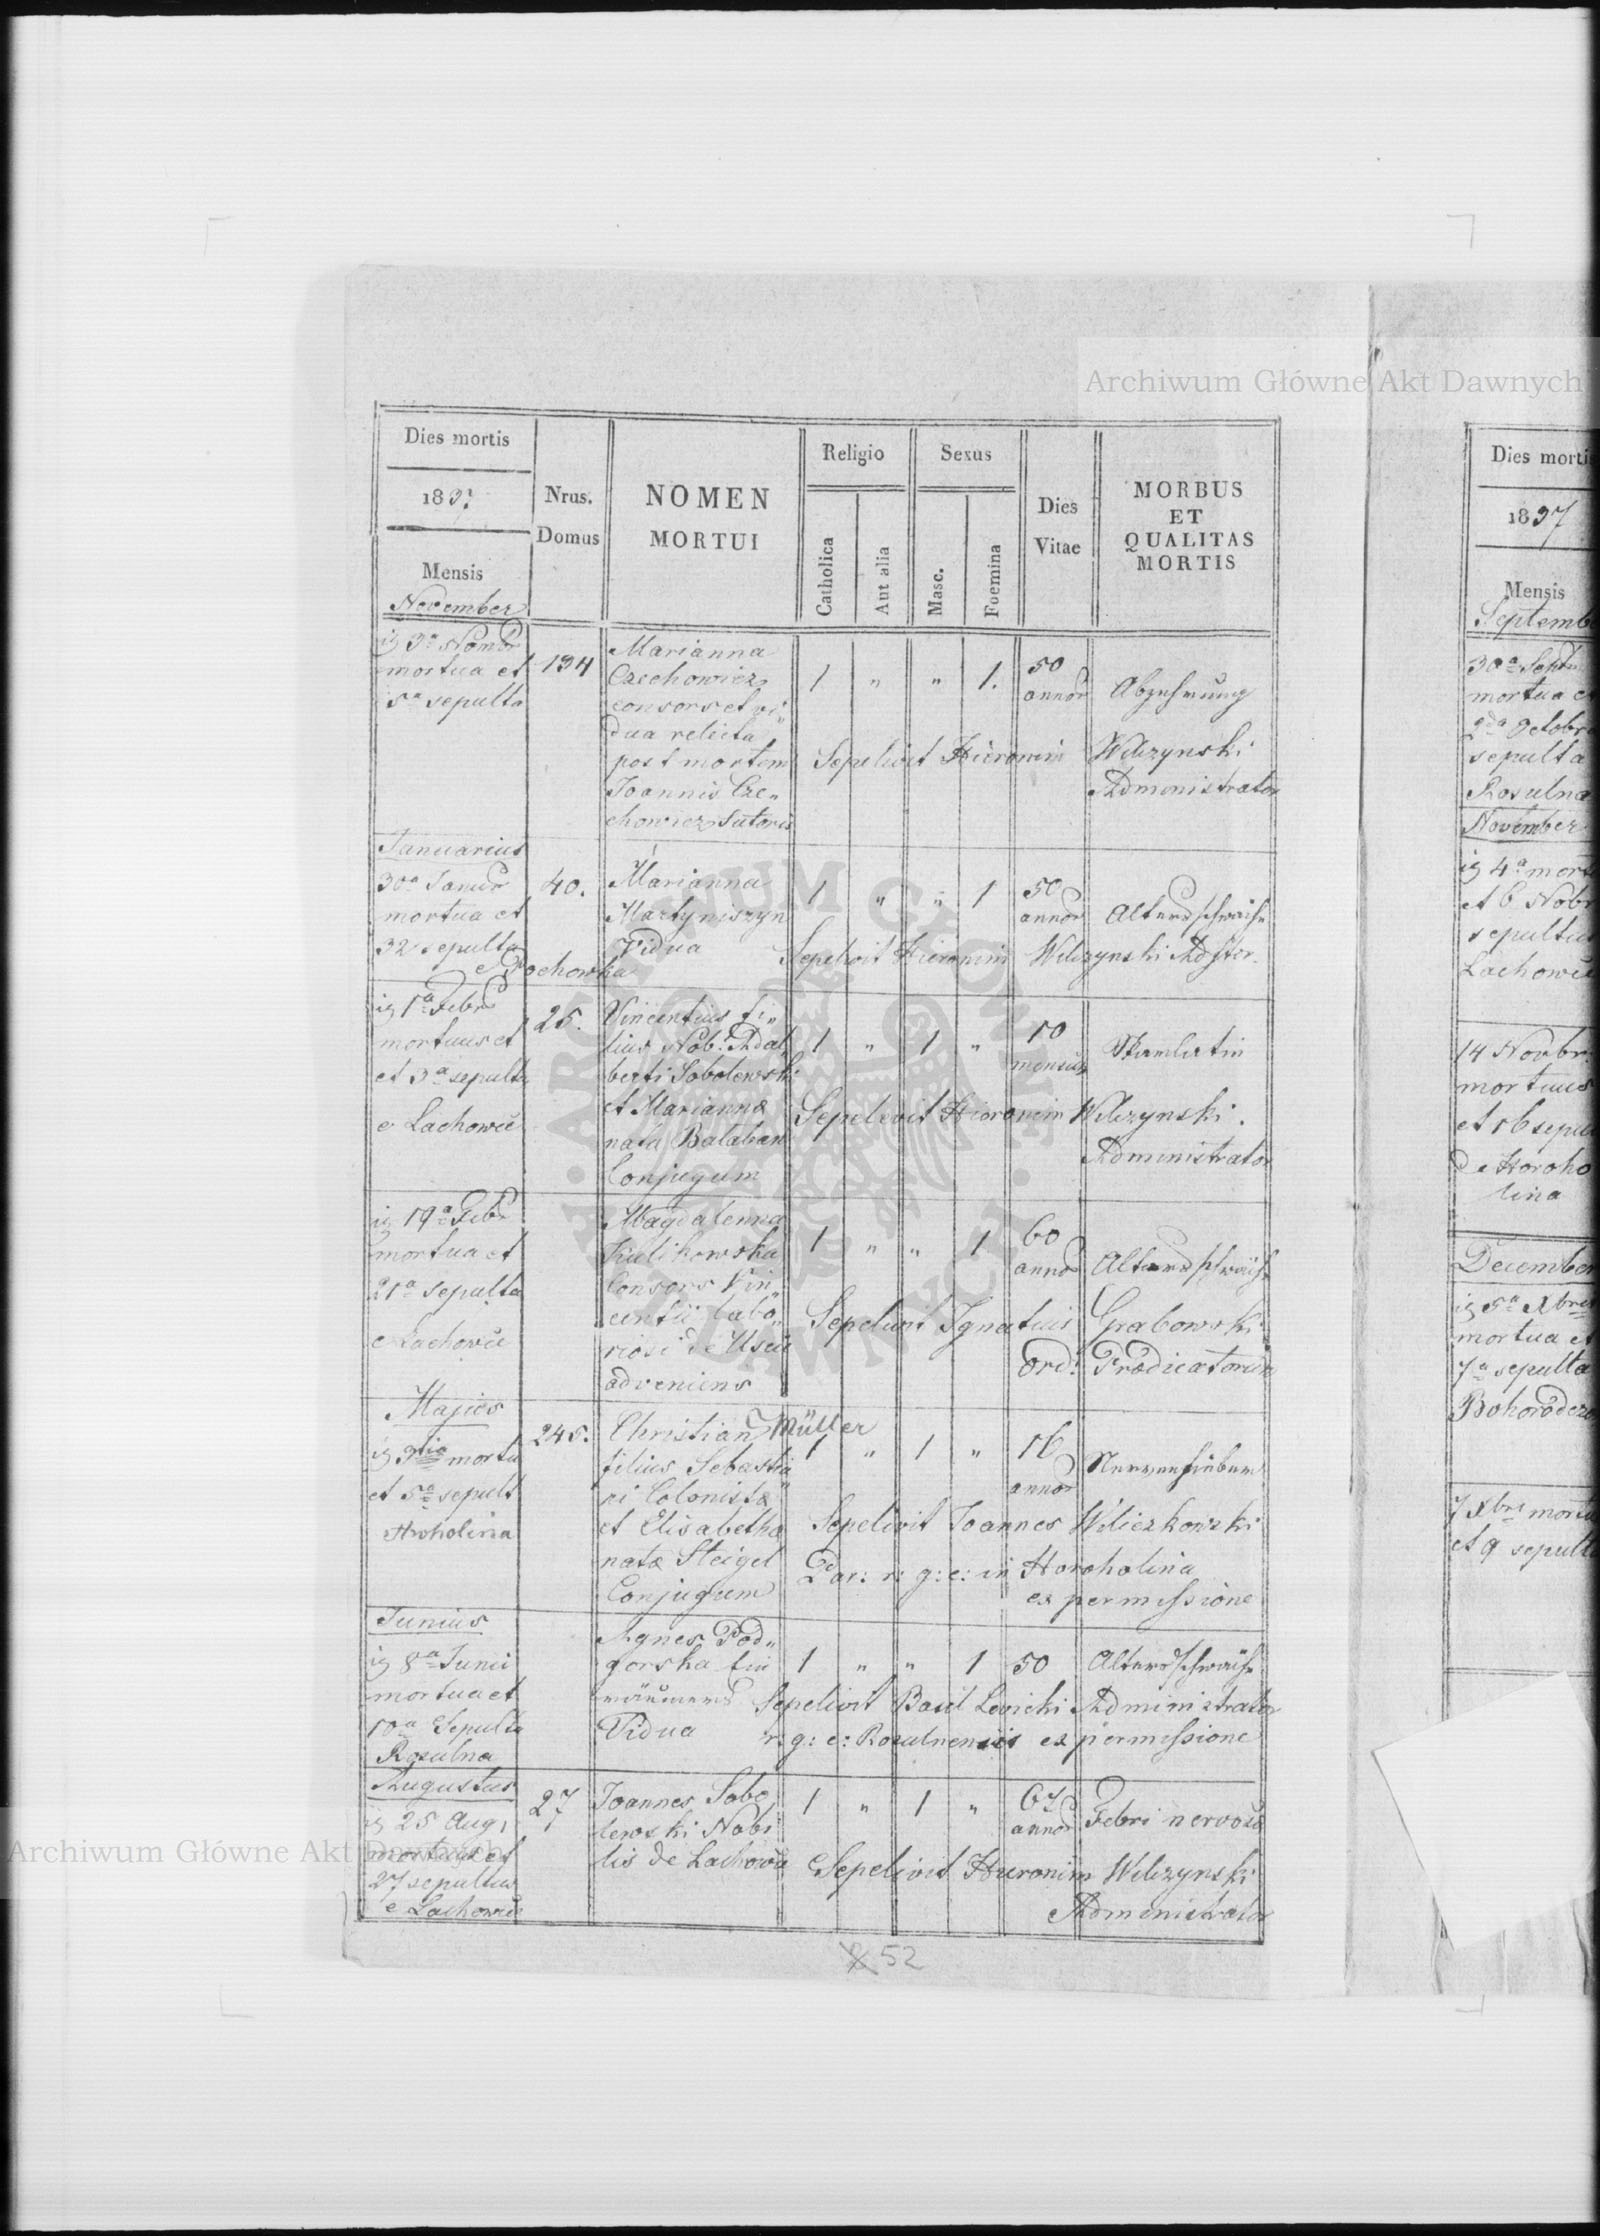 Archiwum Główne Akt Dawnych
Dies mortis
183
Mensis
November
Nrus.
Domus
NOMEN
MORTUI
Religio
Catholica
Aut alia
Sexus
Masc.
Foemina
Dies
Vitae
MORBUS
ET
QUALITAS
MORTIS
mortua et
5a sepulta
134
Marianna
Czechowicz
consors et vi„
dua relicta
post mortem
Joannis Cze„
chowicz Sutoris
1 „ „ 1.
50
annor
Abzehrung
Sepelivit Hieronim Wilczynski
Administrator
Januarius
30a Januar
mortua et
32 sepulta
e Pochowka
40.
Marianna
Martyniszyn
Vidua
1 „ „ 1
50
annor
Altersschwäche
Sepelivit Hieronim Wilczynski Adstor.
1a Febr
mortuus et
et 3a sepulta
e Lachowce
25.
Vincentius fi„
lius Nob. Adal„
berti Sobolewski
et Marianna
nata Balaban
Conjugum
1 „ 1 „
10
mensium
Skarlatin
Sepelevit Hieronim Wilczynski.
Administrator
19a Febr
mortua et
21a sepulta
e Lachowce
Magdalenna
Kulikowska
Consors Vin„
centii labo„
riosi de Uscie
adveniens
1 „ „ 1
60
annor
Altersschwäche
Sepelivit Ignatius Grabowski
Ord: Prædicatorum
Majus
mortu
et 5a sepult
Horoholina
245.
Christian Müller
filius Sebastia„
ni Colonistæ
et Elisabetha
natæ Steigel
Conjugum
1 „ 1 „
16
annor
Nervenfieber
Sepelivit Joannes Wiliczkowski
Par: r: g: c: in Horoholina
ex permissione
Junius
8a Junii
mortua et
10a Sepulta
Rosulna
Agnes Pod„
gorska Ein
wäuners
Vidua
1 „ „ 1
50
Altersschwäche
Sepelivit Basil Levicki Administrator
r: g: c: Rosulnensis ex permissione
Augustus
25 Aug,
mortuus et
27 sepultus
e Lachowce
27
Joannes Sobo„
lewski Nobi
lis de Lachowce
1 „ 1 „
67
annor
Febri nervosa
Sepelivit Hieronim Wilczynski
Administrator
52
Archiwum Główne Akt Dawnych
Dies mortis
1837
Mensis
Septemb
30a Sept
mortua e
Octobr
sepulta
Rosulna
November
4a mort
et 6 Nobr
sepultus
Lachowce
14 Novbr.
mortuus
et 16 sepul
de Horoho
lina
December
5a Xbris
mortua et
7a sepulta
Bohorodcza
7 Xbris mortu
et 9 sepulta
ARCHIWUM GŁÓWNE AKT DAWNYCH